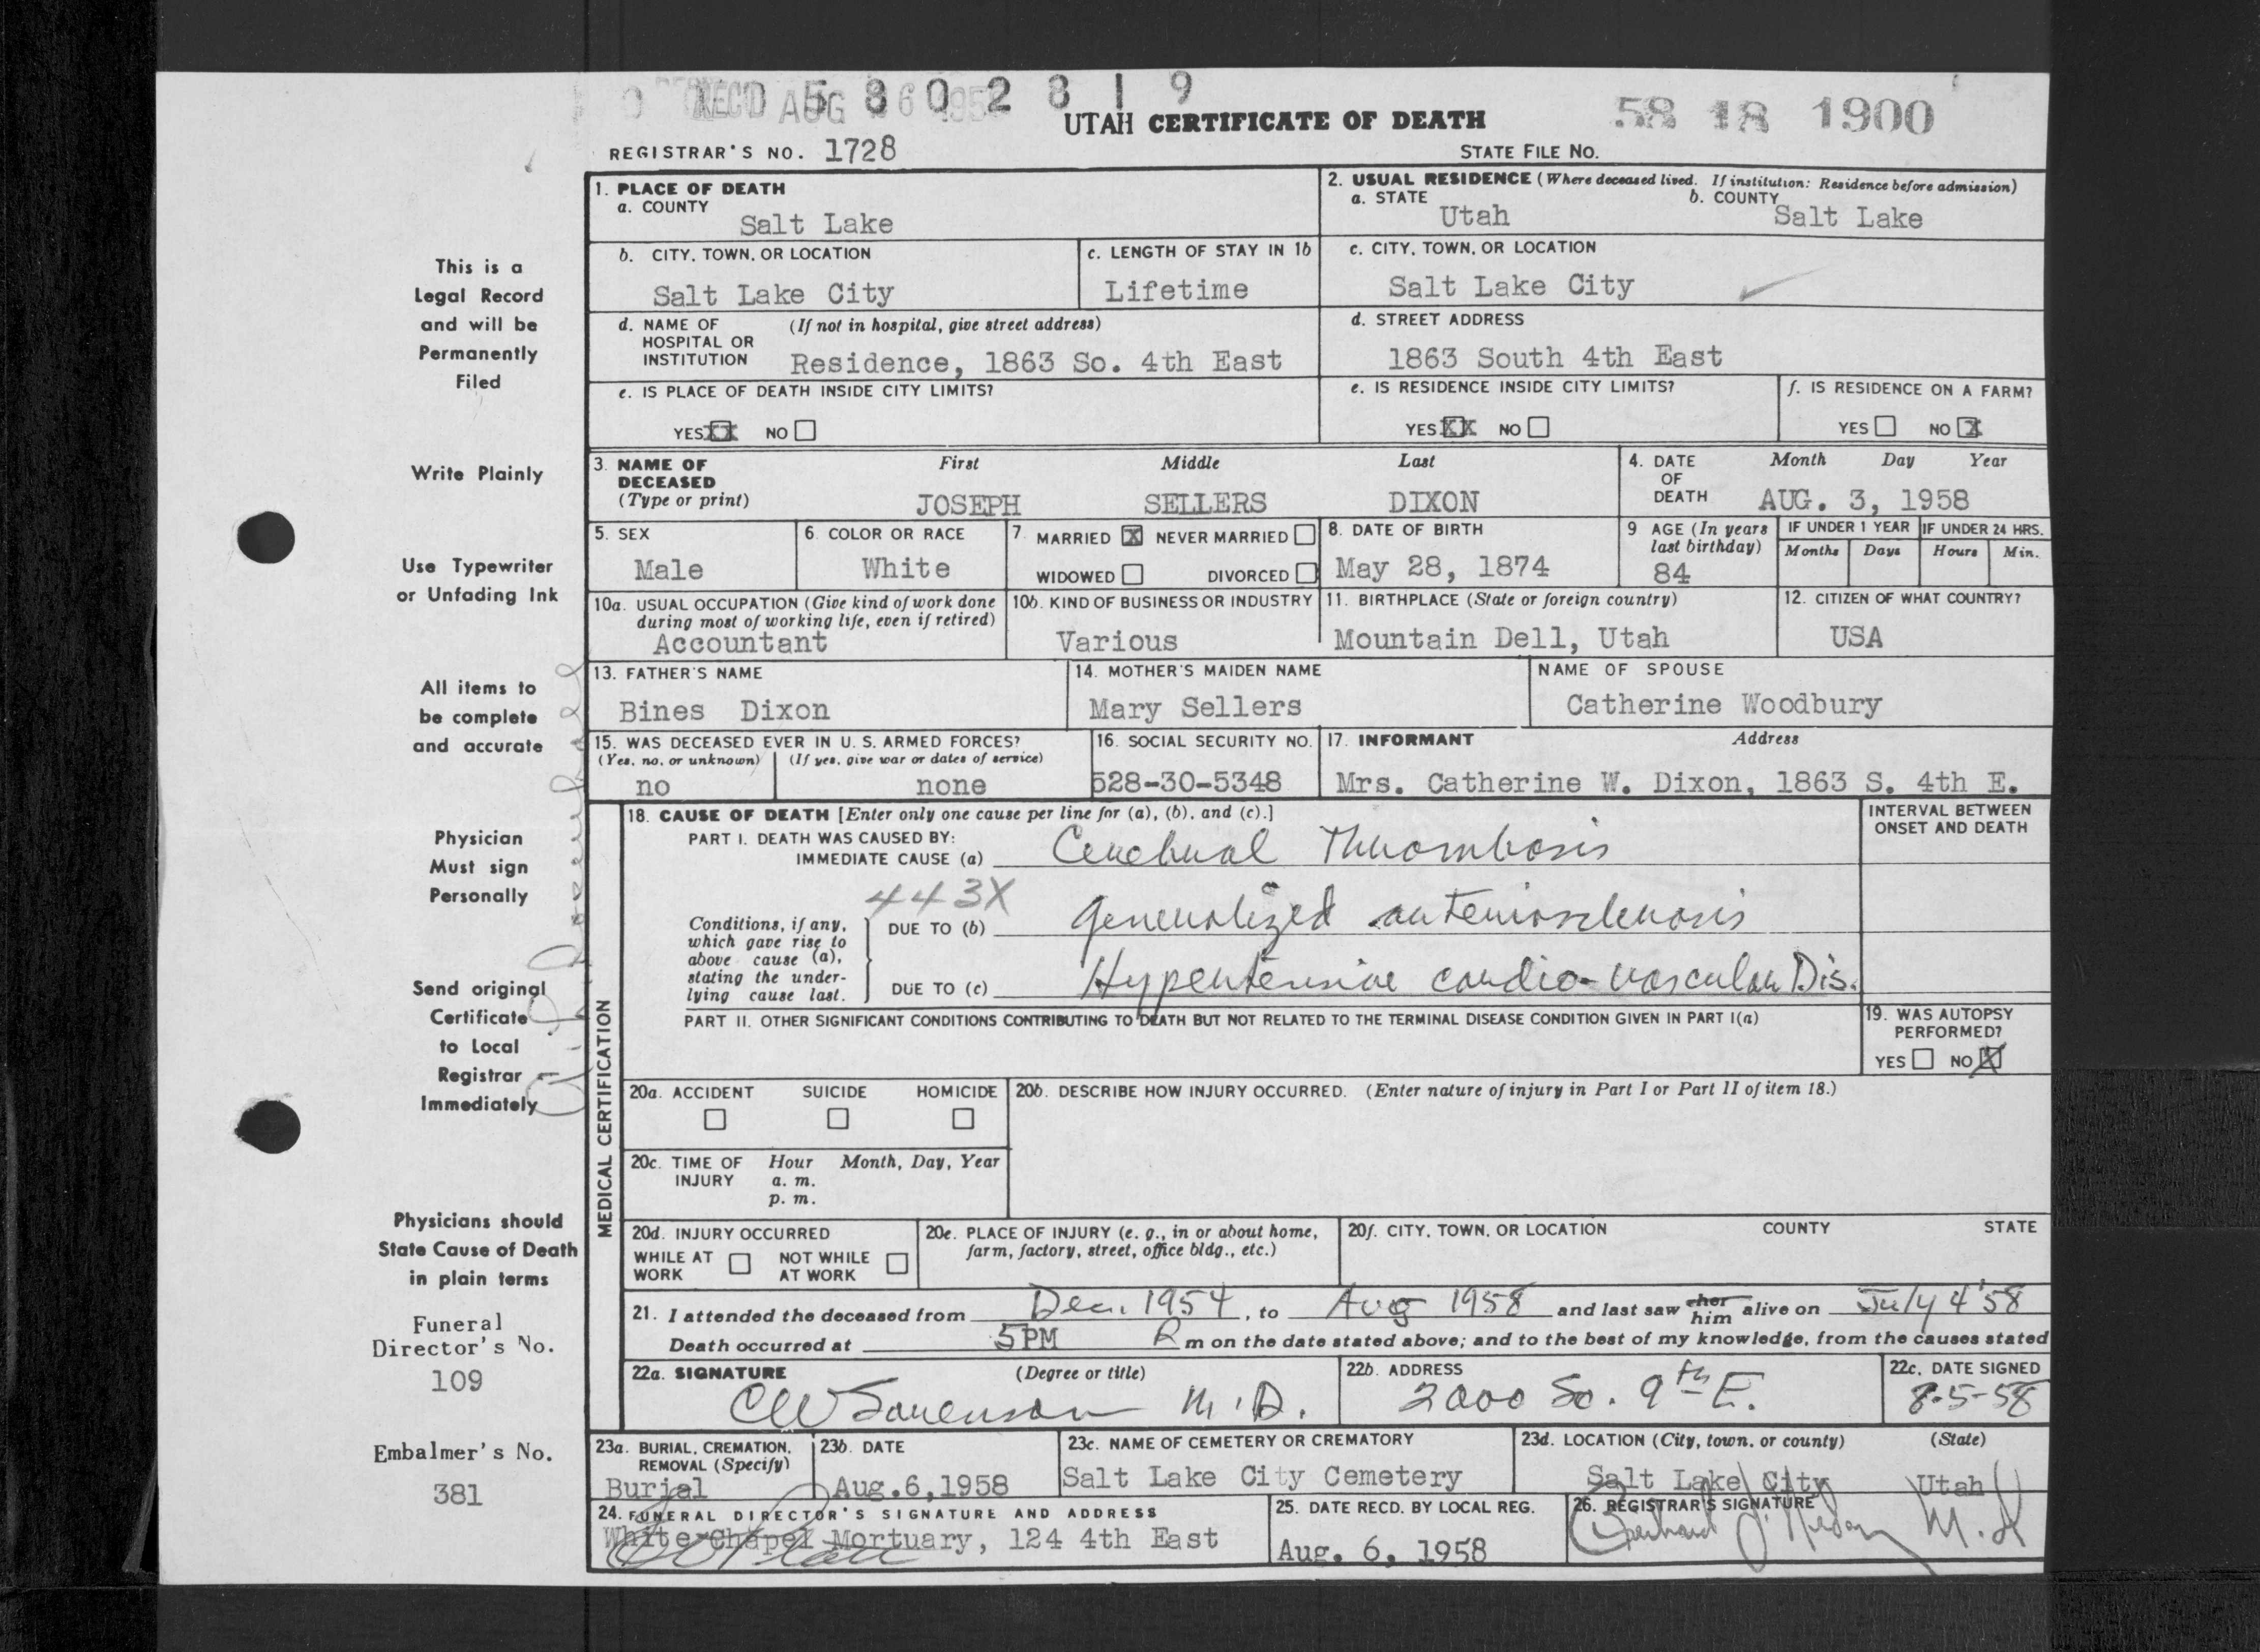 REC'D AUG 6 195
5802819
UTAH CERTIFICATE OF DEATH
58 18 1900
REGISTRAR'S NO. 1728
STATE FILE NO.
1. PLACE OF DEATH
a. COUNTY
Salt Lake
2. USUAL RESIDENCE (Where deceased lived. If institution: Residence before admission)
a. STATE b. COUNTY
Utah Salt Lake
b. CITY, TOWN, OR LOCATION
Salt Lake City
c. LENGTH OF STAY IN 1b
Lifetime
c. CITY, TOWN, OR LOCATION
Salt Lake City
d. NAME OF HOSPITAL OR INSTITUTION (If not in hospital, give street address)
Residence, 1863 So. 4th East
d. STREET ADDRESS
1863 South 4th East
e. IS PLACE OF DEATH INSIDE CITY LIMITS?
YES XX NO
e. IS RESIDENCE INSIDE CITY LIMITS?
YES XX NO
f. IS RESIDENCE ON A FARM?
YES NO X
3. NAME OF DECEASED (Type or print)
First Middle Last
JOSEPH SELLERS DIXON
4. DATE OF DEATH
Month Day Year
AUG. 3, 1958
5. SEX
Male
6. COLOR OR RACE
White
7. MARRIED X NEVER MARRIED
WIDOWED DIVORCED
8. DATE OF BIRTH
May 28, 1874
9 AGE (In years last birthday)
84
IF UNDER 1 YEAR
Months Days
IF UNDER 24 HRS.
Hours Min.
10a. USUAL OCCUPATION (Give kind of work done during most of working life, even if retired)
Accountant
10b. KIND OF BUSINESS OR INDUSTRY
Various
11. BIRTHPLACE (State or foreign country)
Mountain Dell, Utah
12. CITIZEN OF WHAT COUNTRY?
USA
13. FATHER'S NAME
Bines Dixon
14. MOTHER'S MAIDEN NAME
Mary Sellers
NAME OF SPOUSE
Catherine Woodbury
15. WAS DECEASED EVER IN U. S. ARMED FORCES?
(Yes, no, or unknown) (If yes, give war or dates of service)
no none
16. SOCIAL SECURITY NO.
528-30-5348
17. INFORMANT Address
Mrs. Catherine W. Dixon, 1863 S. 4th E.
MEDICAL CERTIFICATION
18. CAUSE OF DEATH [Enter only one cause per line for (a), (b), and (c).]
INTERVAL BETWEEN ONSET AND DEATH
PART I. DEATH WAS CAUSED BY:
IMMEDIATE CAUSE (a) Cerebral Thrombosis
443X
Conditions, if any, which gave rise to above cause (a), stating the underlying cause last.
DUE TO (b) generalized arteriosclerosis
DUE TO (c) Hypertensive cardio-vascular Dis.
PART II. OTHER SIGNIFICANT CONDITIONS CONTRIBUTING TO DEATH BUT NOT RELATED TO THE TERMINAL DISEASE CONDITION GIVEN IN PART I(a)
19. WAS AUTOPSY PERFORMED?
YES NO X
20a. ACCIDENT SUICIDE HOMICIDE
20b. DESCRIBE HOW INJURY OCCURRED. (Enter nature of injury in Part I or Part II of item 18.)
20c. TIME OF INJURY Hour Month, Day, Year
a. m.
p. m.
20d. INJURY OCCURRED
WHILE AT WORK NOT WHILE AT WORK
20e. PLACE OF INJURY (e. g., in or about home, farm, factory, street, office bldg., etc.)
20f. CITY, TOWN, OR LOCATION COUNTY STATE
21. I attended the deceased from Dec. 1954, to Aug 1958 and last saw her him alive on July 4 '58
Death occurred at 5PM m on the date stated above; and to the best of my knowledge, from the causes stated
22a. SIGNATURE (Degree or title)
CW Sorenson M.D.
22b. ADDRESS
2000 So. 9th E.
22c. DATE SIGNED
8-5-58
23a. BURIAL, CREMATION, REMOVAL (Specify)
Burial
23b. DATE
Aug.6,1958
23c. NAME OF CEMETERY OR CREMATORY
Salt Lake City Cemetery
23d. LOCATION (City, town, or county) (State)
Salt Lake City Utah
24. FUNERAL DIRECTOR'S SIGNATURE AND ADDRESS
White Chapel Mortuary, 124 4th East
25. DATE RECD. BY LOCAL REG.
Aug. 6, 1958
26. REGISTRAR'S SIGNATURE
This is a
Legal Record
and will be
Permanently
Filed
Write Plainly
Use Typewriter
or Unfading Ink
All items to
be complete
and accurate
Physician
Must sign
Personally
Send original
Certificate
to Local
Registrar
Immediately
Physicians should
State Cause of Death
in plain terms
Funeral
Director's No.
109
Embalmer's No.
381